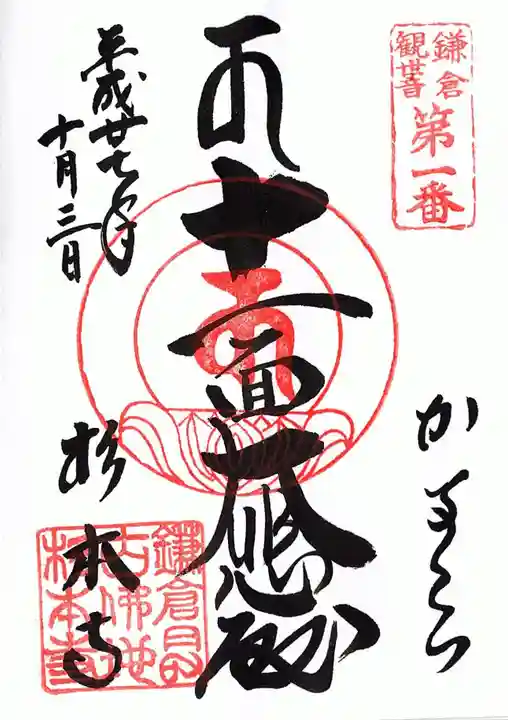 鎌倉
観世音
第一番
かまくら
十一面大悲殿
平成廿七年
十月三日
杉本寺
鎌倉最
古佛地
杉本寺